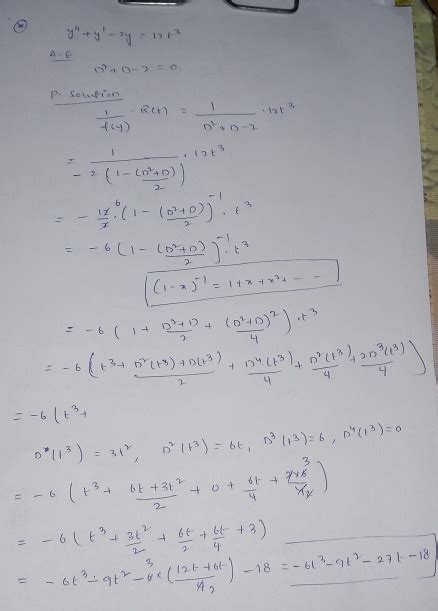 (*)
y" + y' - 2y = 12t³
A.E
D² + D - 2 = 0.
P. Solution
1/f(y) · R(t) = 1/(D² + D - 2) · 12t³
= 1/(-2(1 - (D²+D)/2)) · 12t³
= - 12/2 6 · (1 - (D²+D)/2)⁻¹ · t³
= -6 (1 - (D²+D)/2)⁻¹ · t³
(1-x)⁻¹ = 1 + x + x² + - - -
= -6 (1 + (D²+D)/2 + (D²+D)²/4) · t³
= -6 (t³ + (D²(t³) + D(t³))/2 + D⁴(t³)/4 + D²(t³)/4 + 2D³(t³)/4)
= -6 (t³ +
D(t³) = 3t², D²(t³) = 6t, D³(t³) = 6, D⁴(t³) = 0
= -6 (t³ + (6t + 3t²)/2 + 0 + 6t/4 + 2×6/4 3)
= -6 (t³ + 3t²/2 + 6t/2 + 6t/4 + 3)
= -6t³ - 9t² - 6 3 × (12t + 6t)/4 2 - 18 = -6t³ - 9t² - 27t - 18